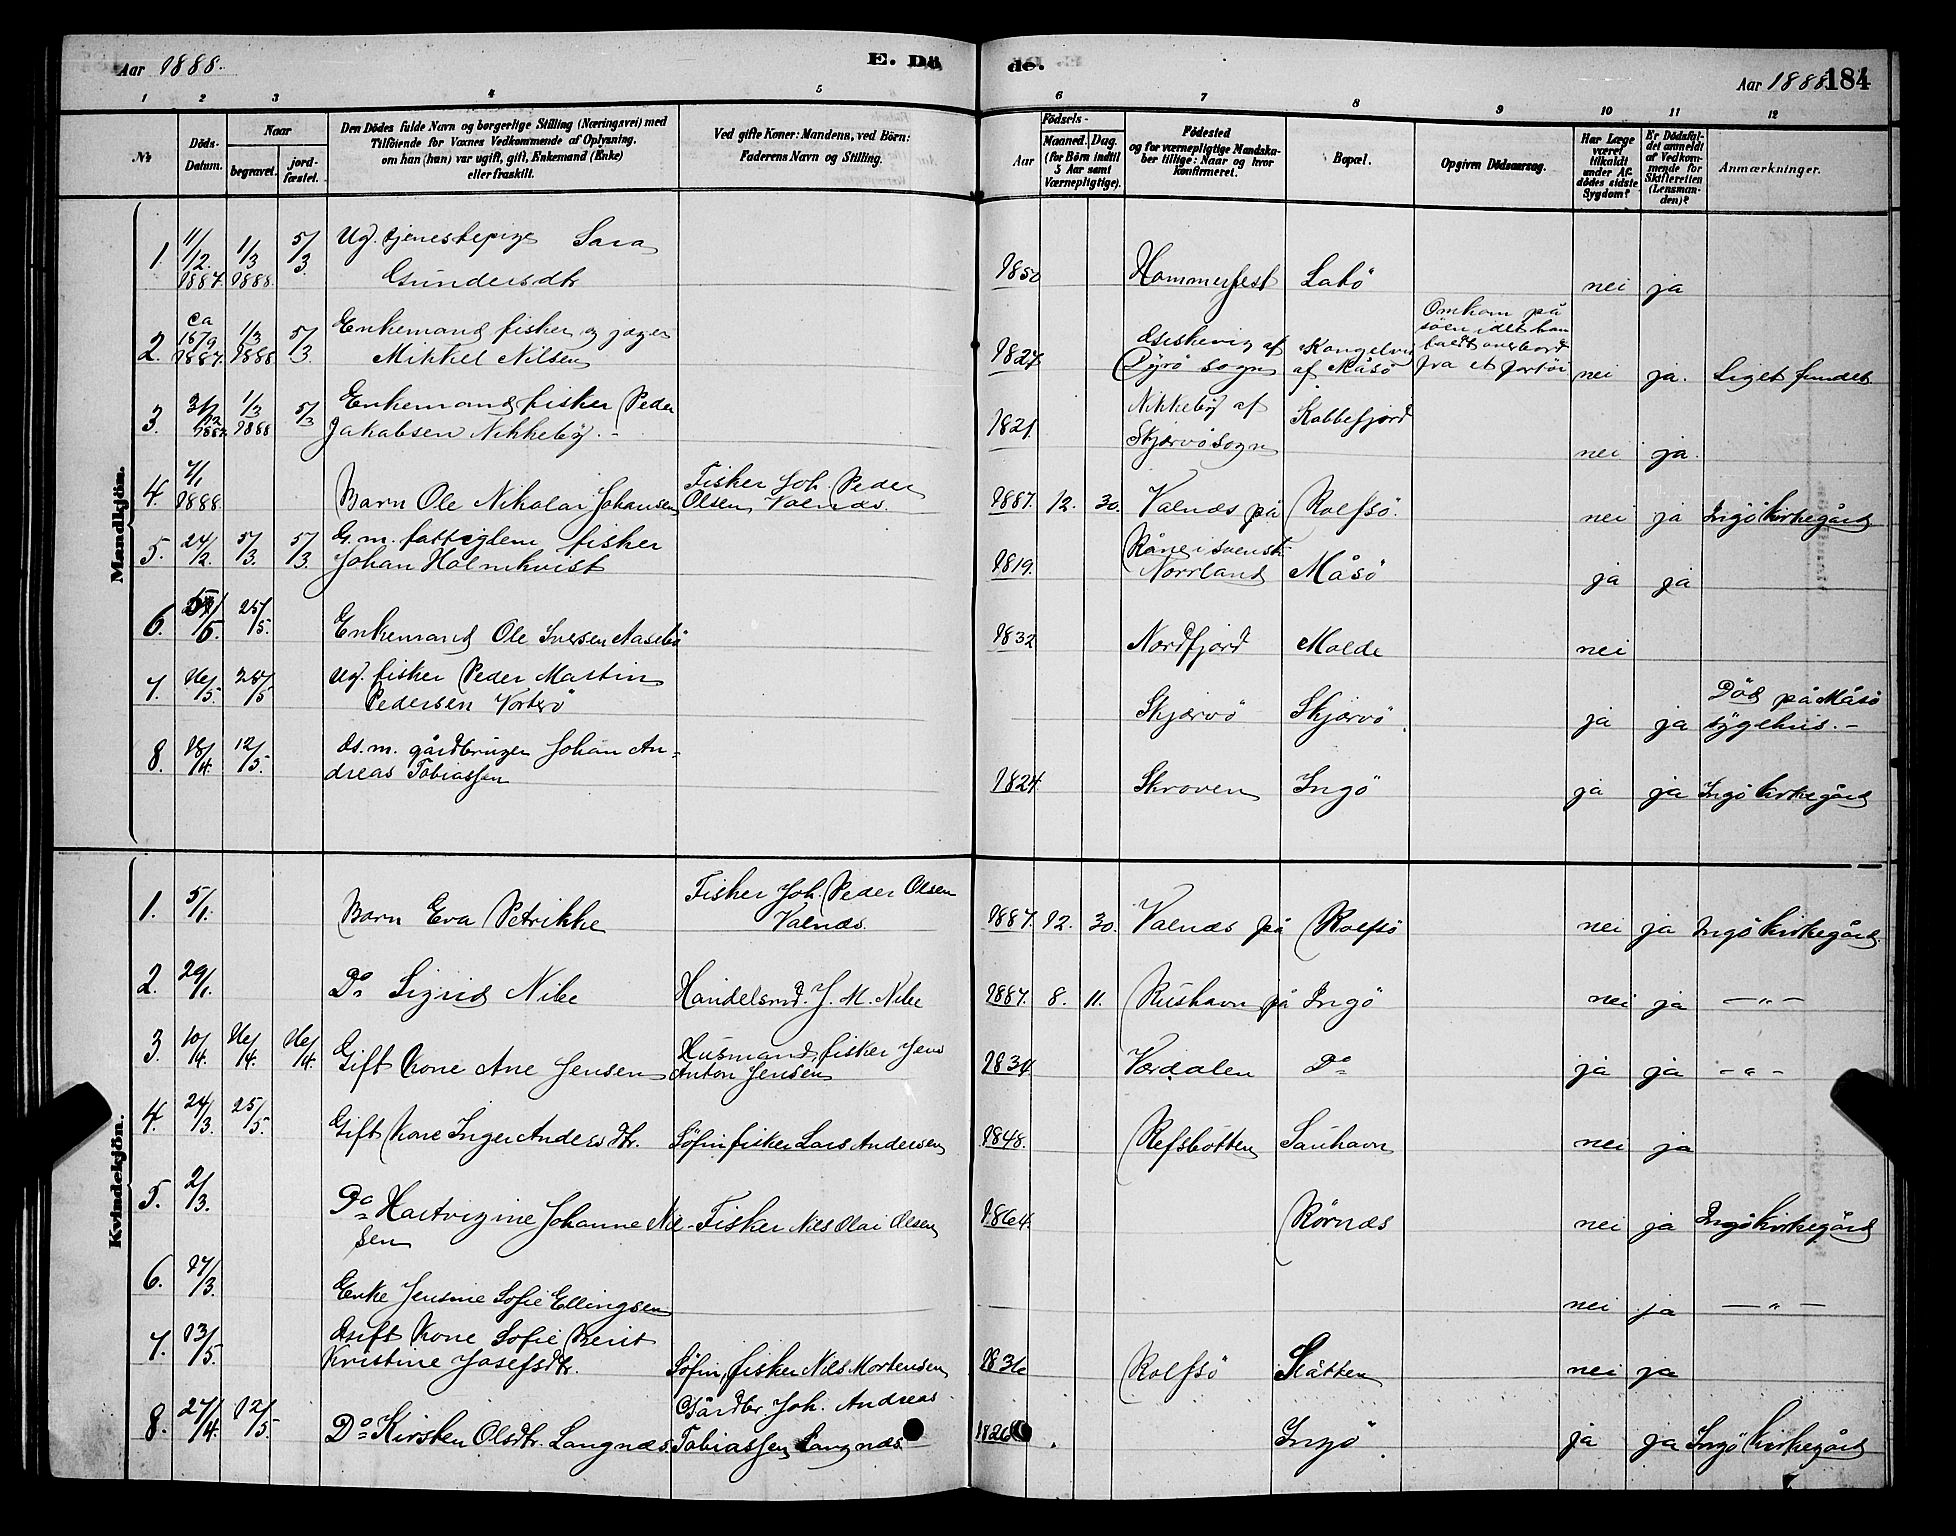 Aar 1888. E. Dö de. Aar 1888. 184
1 2 3 4 5 6 7 8 9 10 11 12
No
Döds-Datum.
Naar
begravet.
jord-fæstet.
Den Dödes fulde Navn og borgerlige Stilling (Næringsvei) med
Tilföiende for Voxnes Vedkommende af Oplysning,
om han (hun) var ugift, gift, Enkemand (Enke)
eller fraskilt.
Ved gifte Koner: Mandens, ved Börn:
Faderens Navn og Stilling.
Födsels-
Aar
Maaned. Dag.
(for Börn indtil
5 Aar samt
Værnepligtige).
Födested
og for værnepligtige Mandska-
ber tillige: Naar og hvor
konfirmeret.
Bopæl.
Opgiven Dödsaarsag.
Har Læge
været
tilkaldt
under Af-
dödes sidste
Sygdom?
Er Dödsfal-
det anmeldt
af Vedkom-
mende for
Skifteretten
(Lensman-
den)?
Anmærkninger.
Mandkjön.
1. 11/12. 1887. 1/3 1888. 5/3. Ug. tjenestepige Sara
Gundersdtr 1850 Hammerfest Latö nei ja
2. ca 15/9 1887. 1/3 1888. 5/3. Enkemand fisker og jæger
Mikkel Nilsen 1827 af
sogn af Måsö Omkom på
söen idet han
faldt overbord
fra et fartöi nei ja. Liget fundet
3. 31/12 1887. 1/3 1888 5/3 Enkemand fisker Peder
Jakobsen Nikkeby.- 1821. Nikkeby af
Skjervö sogn Kobbefjord nei ja.
4. 7/1 1888. Barn Ole Nikolai Johansen Fisker Joh. Peder
Olsen Valnæs. 1887. 12. 30. Valnæs på Rolfsö. nei ja Ingö kirkegård
5. 24/2. 5/3. 5/3. G. m. fattiglem fisker
Johan Holmkvist 1819. Råne i svensk
Norrland Måsö ja ja
6. /5. 25/5. Enkemand Ole Iversen Aasebö 1832 Nordfjord Molde nei
7. 16/5. 25/5 Ug. fisker Peder Martin
Pedersen Vorterö Skjervö Skjervö ja ja Död på Måsö
sygehus.-
8. 18/4. 12/5. G. m. gårdbruger Johan An=
dreas Tobiassen 1824 Skroven Ingö ja ja Ingö kirkegård
Kvindekjön.
1. 5/1. Barn Eva Petrikke Fisker Joh. Peder Olsen
Valnæs. 1887. 12. 30. Valnæs på Rolfsö nei ja Ingö kirkegård.
2. 29/1. Do Sigrid Nibe Handelsmd. J. M. Nibe 1887. 8. 11. Rushavn på Ingö nei ja —"—
3. 10/4. 16/4. 16/4. Gift kone Ane Jensen Husmand, fisker Jens
Anton Jensen 1834 Værdalen Do ja ja -"-
4. 24/3. 25/5. Gift kone Inger Andersdtr. Söfin, fisker Lars Andersen 1848. Refsbotten Sauhavn nei ja
5. 2/3. Do Hartvigine Johanne Nil-
sen Fisker Nils Olai Olsen 1864 Rörnæs nei ja Ingö kirkegård
6. 17/3. Enke Jensine Sofie Ellingsen — nei ja —"—
7. 13/5. Gift kone Sofie Berit
Kristine Josefsdtr. Söfin, fisker Nils Mortensen 1836 Rolfsö Slåtten nei ja
8. 27/4. 12/5. Do Kirsten Olsdtr. Langnæs Gårdbr. Joh. Andreas
Tobiassen Langnæs 1826 Ingö ja ja Ingö kirkegård